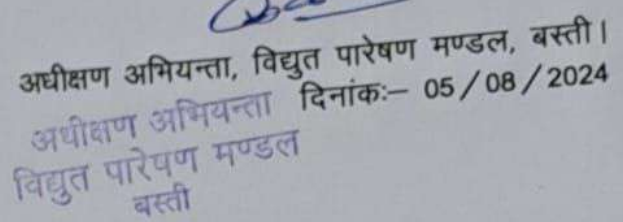 अधीक्षण अभियन्ता, विद्युत पारेषण मण्डल, बस्ती।
दिनांकः– 05/08/2024
अधीक्षण अभियन्ता
विद्युत पारेषण मण्डल
बस्ती